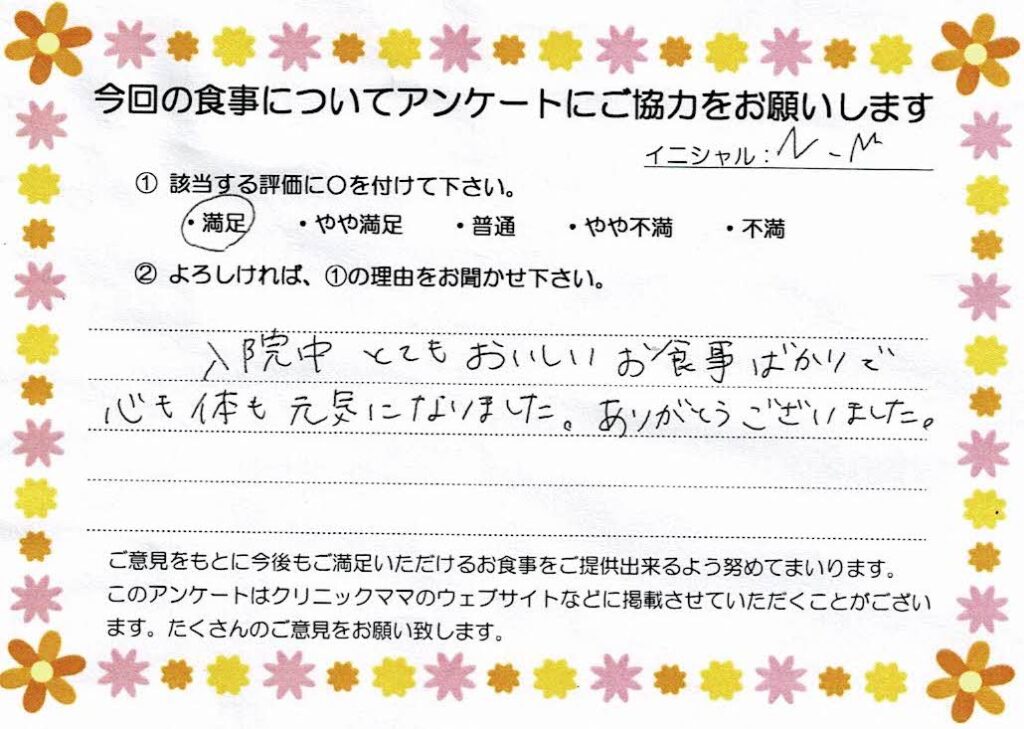 今回の食事についてアンケートにご協力をお願いします
イニシャル：N-M
① 該当する評価に〇を付けて下さい。
・満足 ・やや満足 ・普通 ・やや不満 ・不満
② よろしければ、①の理由をお聞かせ下さい。
入院中 とてもおいしいお食事ばかりで
心も体も元気になりました。ありがとうございました。
ご意見をもとに今後もご満足いただけるお食事をご提供出来るよう努めてまいります。
このアンケートはクリニックママのウェブサイトなどに掲載させていただくことがござい
ます。たくさんのご意見をお願い致します。